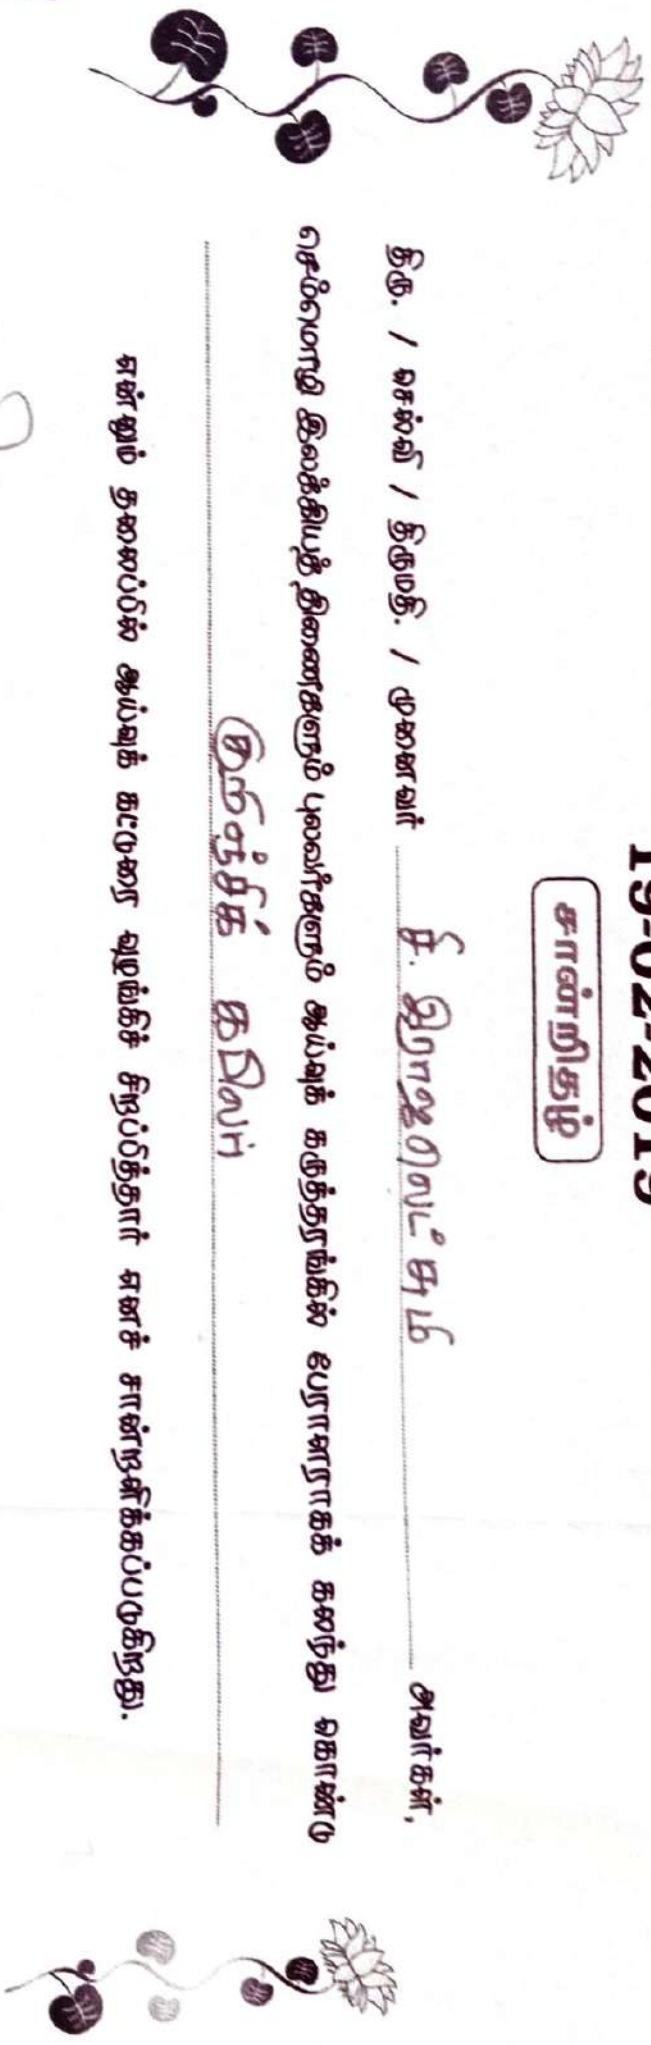 19-02-2019
சான்றிதழ்
திரு. / செல்வி / திருமதி. / முனைவர் சீ. இராஜலெட்சுமி அவர்கள்,
செம்மொழி இலக்கியத் திணைகளும் புலவர்களும் ஆய்வுக் கருத்தரங்கில் பேராளராகக் கலந்து கொண்டு
குறிஞ்சிக் கபிலர்
என்னும் தலைப்பில் ஆய்வுக் கட்டுரை வழங்கிச் சிறப்பித்தார் எனச் சான்றளிக்கப்படுகிறது.